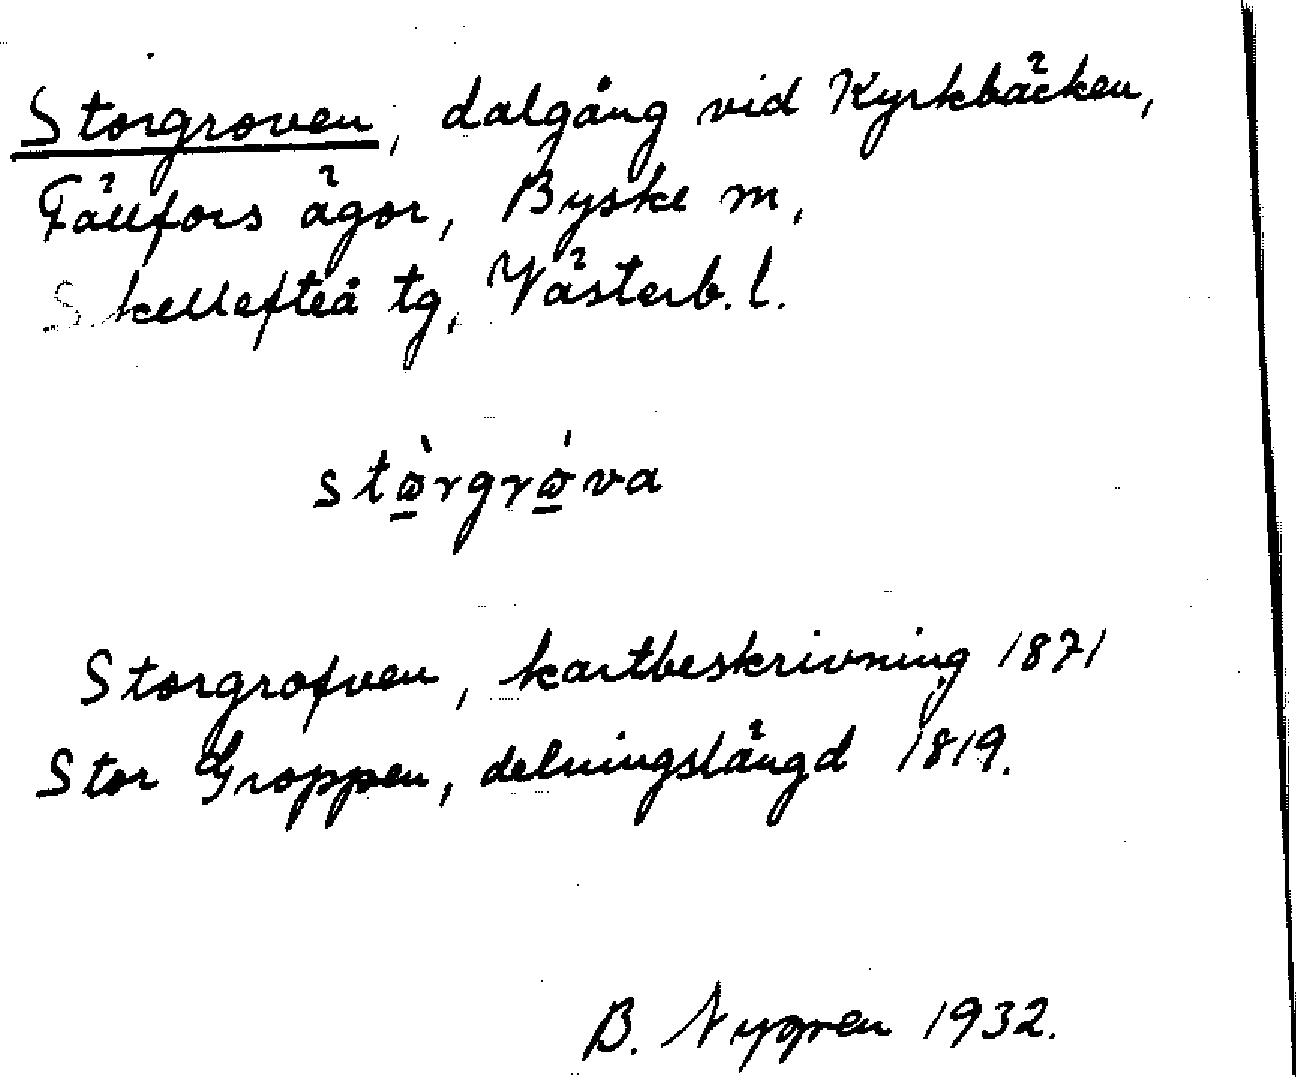 Storgroven, dalgång vid Kyrkbäcken,
Fällfors ägor, Byske m,
Skellefteå tg, Västerb. l.
Storgrofven, kartbeskrivning 1871
Stor Groppen, delningslängd 1819.
B. Nygren 1932.